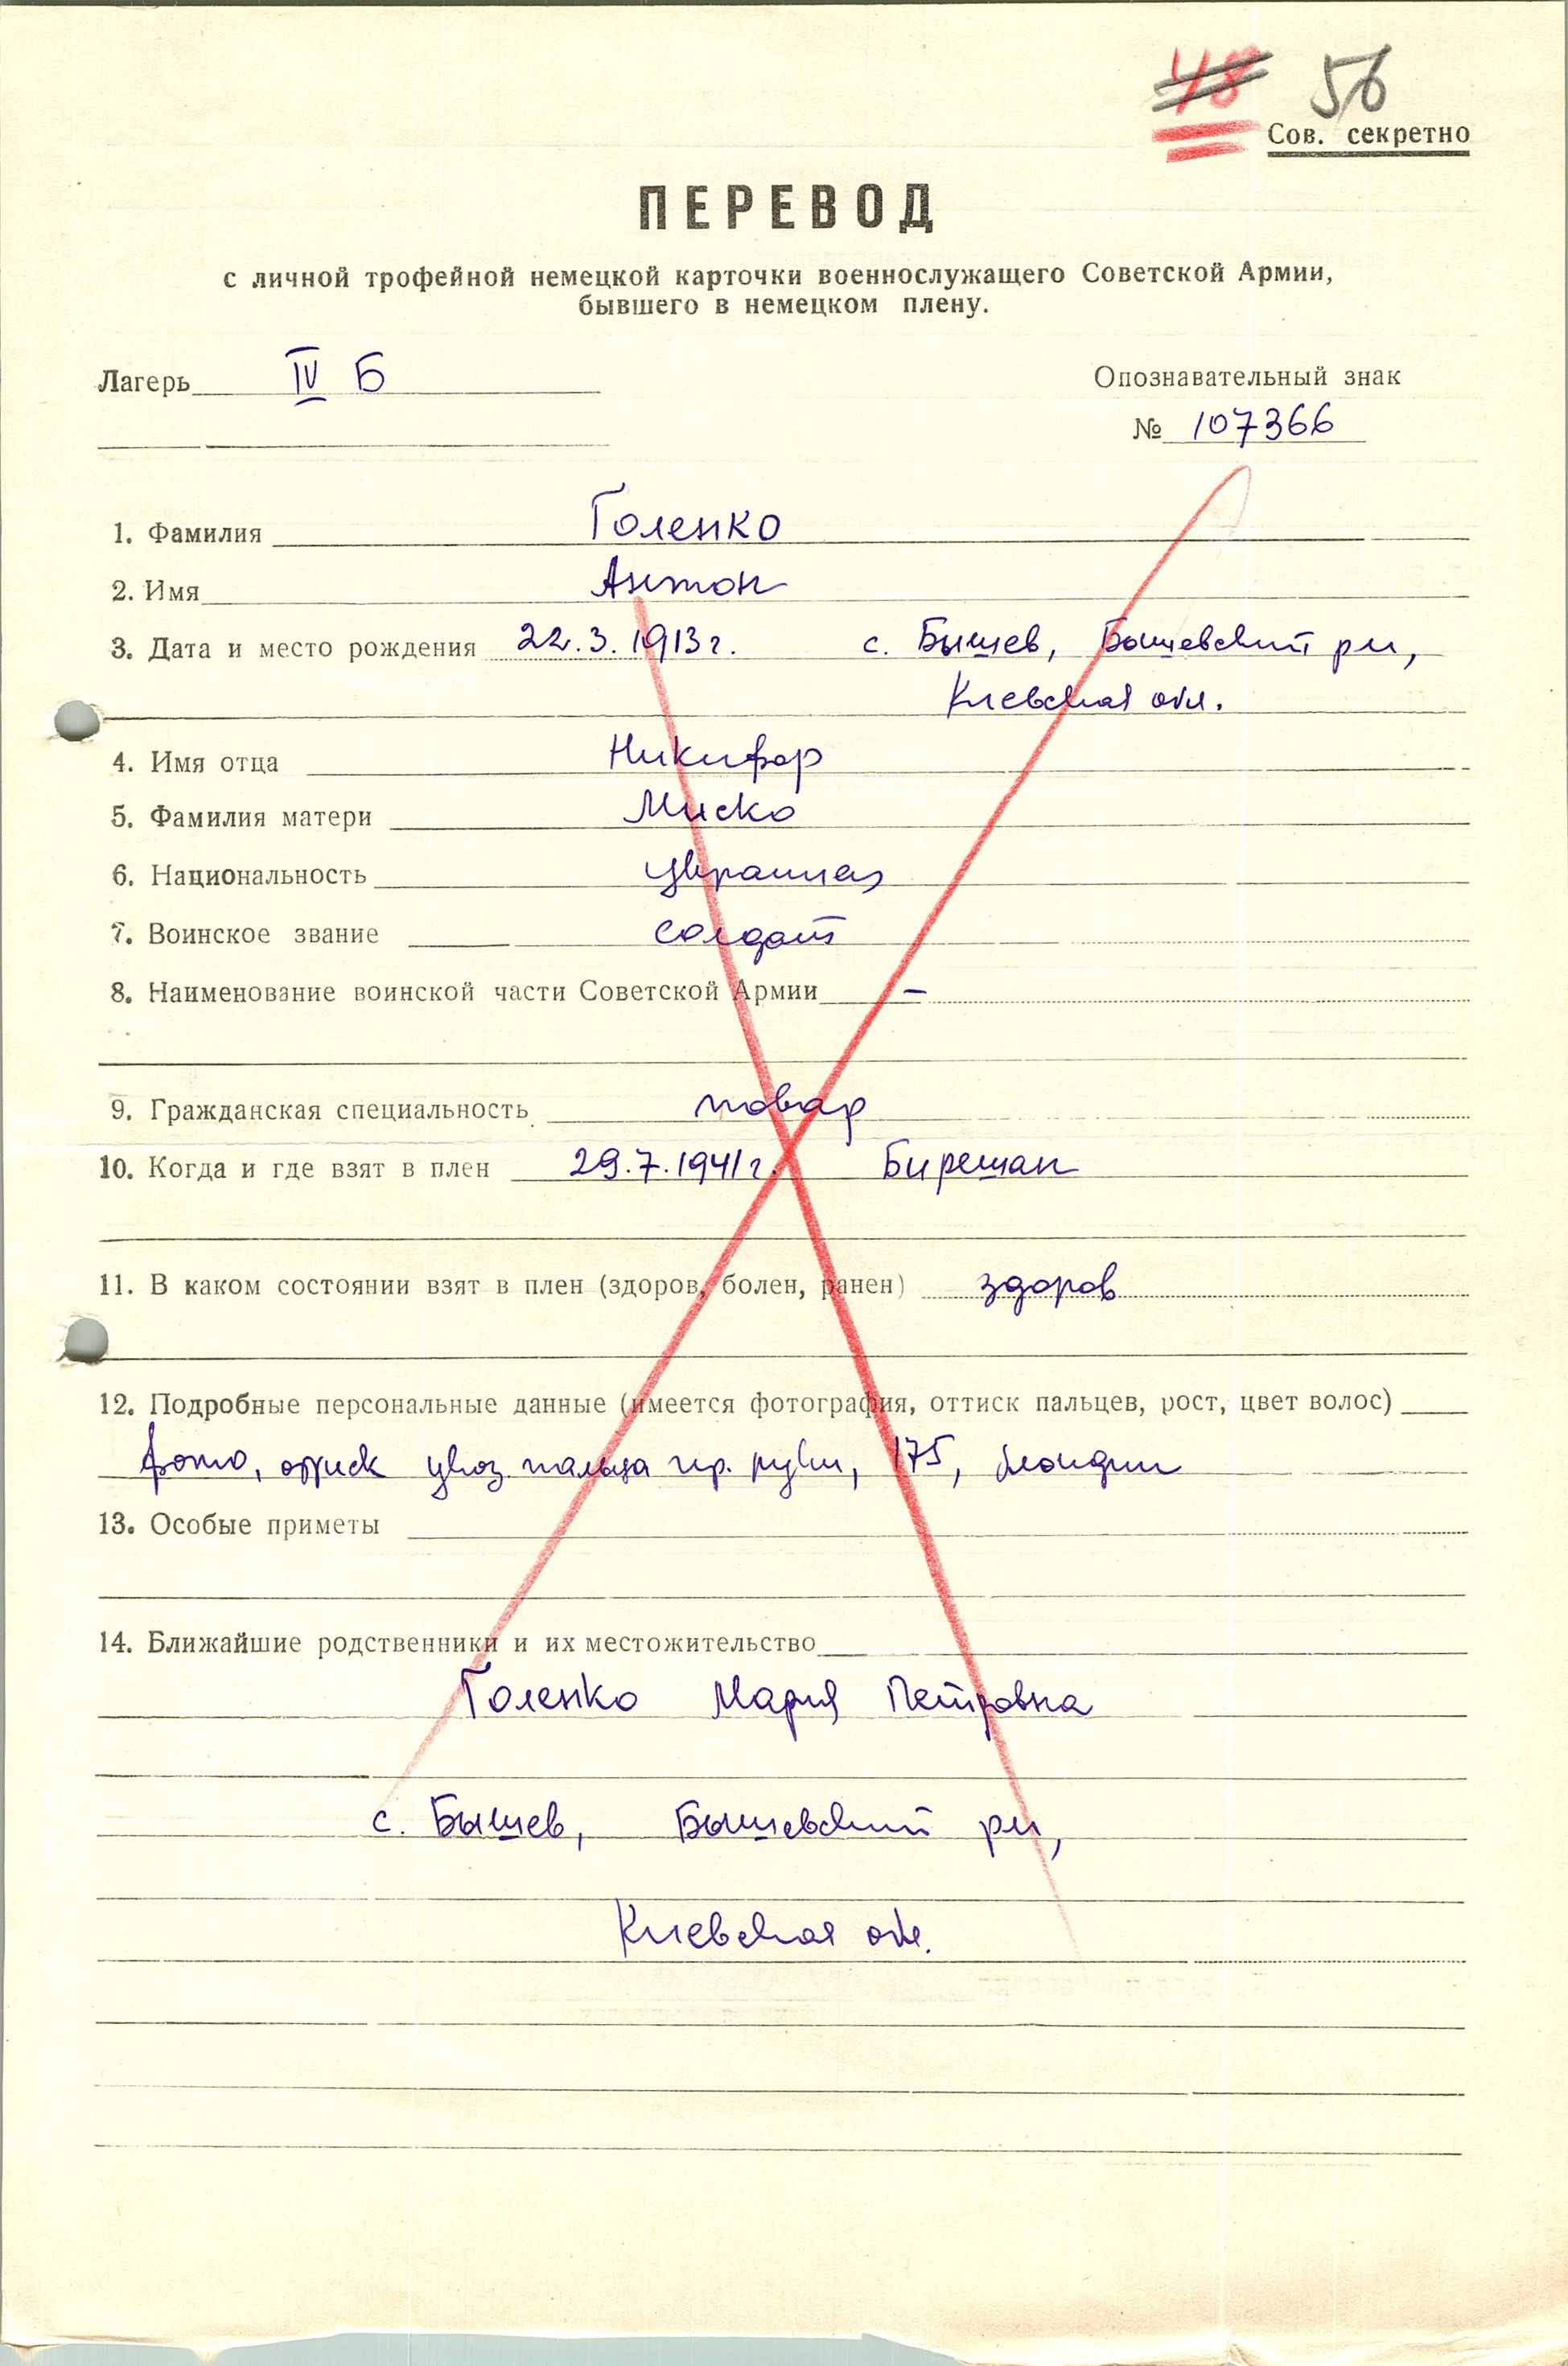 48 56
Сов. секретно
ПЕРЕВОД
с личной трофейной немецкой карточки военнослужащего Советской Армии,
бывшего в немецком плену.
Лагерь IV Б
Опознавательный знак
№ 107366
1. Фамилия Голенко
2. Имя Антон
3. Дата и место рождения 22.3.1913 г. с. Бышев, Бышевский рн,
Киевская обл.
4. Имя отца Никифор
5. Фамилия матери Миско
6. Национальность украинец
7. Воинское звание солдат
8. Наименование воинской части Советской Армии –
9. Гражданская специальность повар
10. Когда и где взят в плен 29.7.1941 г. Бирешан
11. В каком состоянии взят в плен (здоров, болен, ранен) здоров
12. Подробные персональные данные (имеется фотография, оттиск пальцев, рост, цвет волос)
фото, оттиск указ. пальца пр. руки, 175, блондин
13. Особые приметы
14. Ближайшие родственники и их местожительство
Голенко Мария Петровна
с. Бышев, Бышевский рн,
Киевская обл.